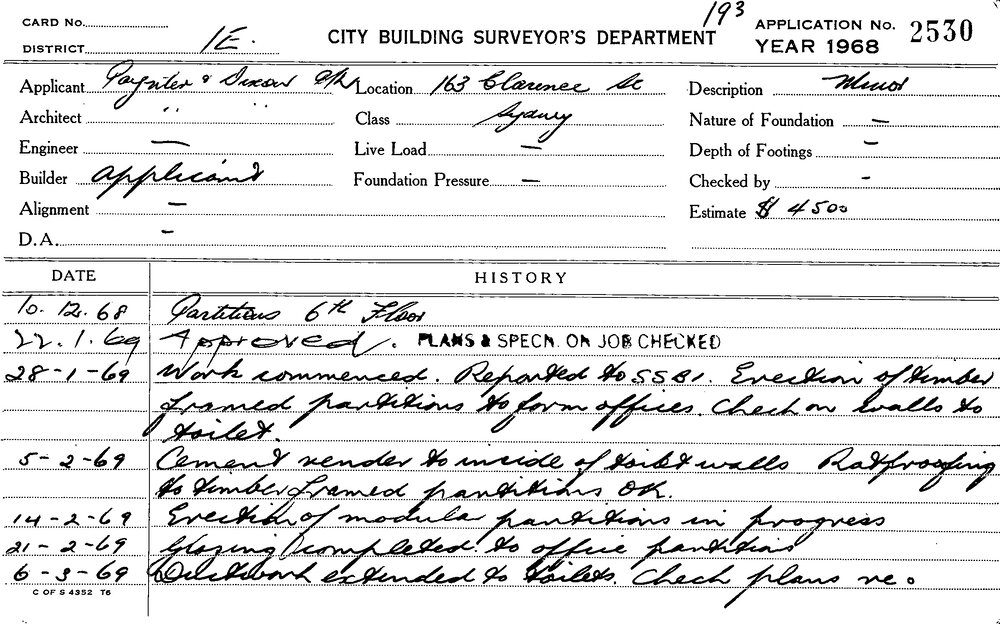 193
CARD No.
APPLICATION No. 2530
DISTRICT 1E.
CITY BUILDING SURVEYOR'S DEPARTMENT
YEAR 1968
Applicant Paynter & Dixon P/L Location 163 Clarence St Description Minor
Architect " " Class Sydney Nature of Foundation —
Engineer — Live Load — Depth of Footings —
Builder applicant Foundation Pressure — Checked by -
Alignment — Estimate $ 4500
D.A. -
DATE HISTORY
10. 12. 68 Partitions 6th Floor
22. 1. 69 Approved. PLANS & SPECN. ON JOB CHECKED
28-1-69 Work commenced. Reported to SSBI. Erection of timber
framed partitions to form offices. Check on walls to
toilet.
5-2-69 Cement render to inside of toilet walls Ratproofing
to timber framed partitions OK.
14-2-69 Erection of modula partitions in progress
21-2-69 Glazing completed to office partitions
6-3-69 Ductwork extended to toilets. Check plans re.
C OF S 4352 T6